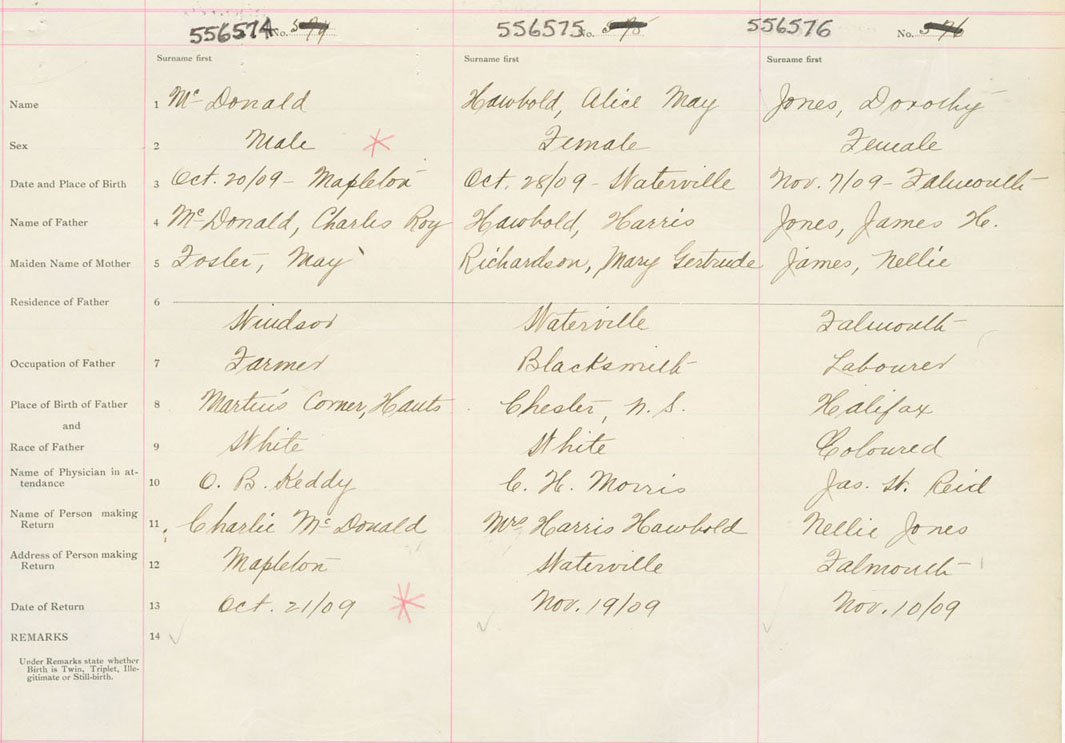 556574 No. 574 556575 No. 575 556576 No. 576
Surname first Surname first Surname first
Name 1 Mc Donald Hawbold, Alice May Jones, Dorothy
Sex 2 Male Female Female
Date and Place of Birth 3 Oct. 20/09 - Mapleton Oct. 28/09 - Waterville Nov. 7/09 - Falmouth
Name of Father 4 Mc Donald, Charles Roy Hawbold, Harris Jones, James H.
Maiden Name of Mother 5 Foster, May Richardson, Mary Gertrude James, Nellie
Residence of Father 6
Windsor Waterville Falmouth
Occupation of Father 7 Farmer Blacksmith Labourer
Place of Birth of Father 8 Martin's Corner, Hants Chester, N.S. Halifax
and
Race of Father 9 White White Coloured
Name of Physician in at-
tendance 10 O. B. Keddy C. H. Morris Jas. W. Reid
Name of Person making
Return 11 Charlie Mc Donald Mrs Harris Hawbold Nellie Jones
Address of Person making
Return 12 Mapleton Waterville Falmouth
Date of Return 13 Oct. 21/09 Nov. 19/09 Nov. 10/09
REMARKS 14
Under Remarks state whether
Birth is Twin, Triplet, Ille-
gitimate or Still-birth.